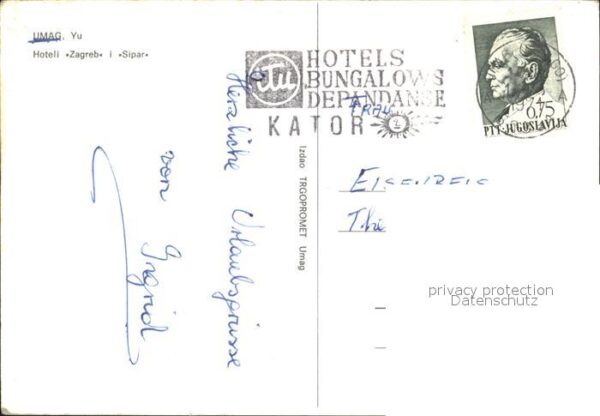 UMAG, Yu
Hoteli »Zagreb« i »Sipar«
Herzliche Urlaubsgrüsse
von Ingrid
Izdao TRGOPROMET Umag
HOTELS
BUNGALOWS
DEPANDANSE
KATOR
0,75
PTT-JUGOSLAVIJA
FRAU
EISENREIS
privacy protection
Datenschutz